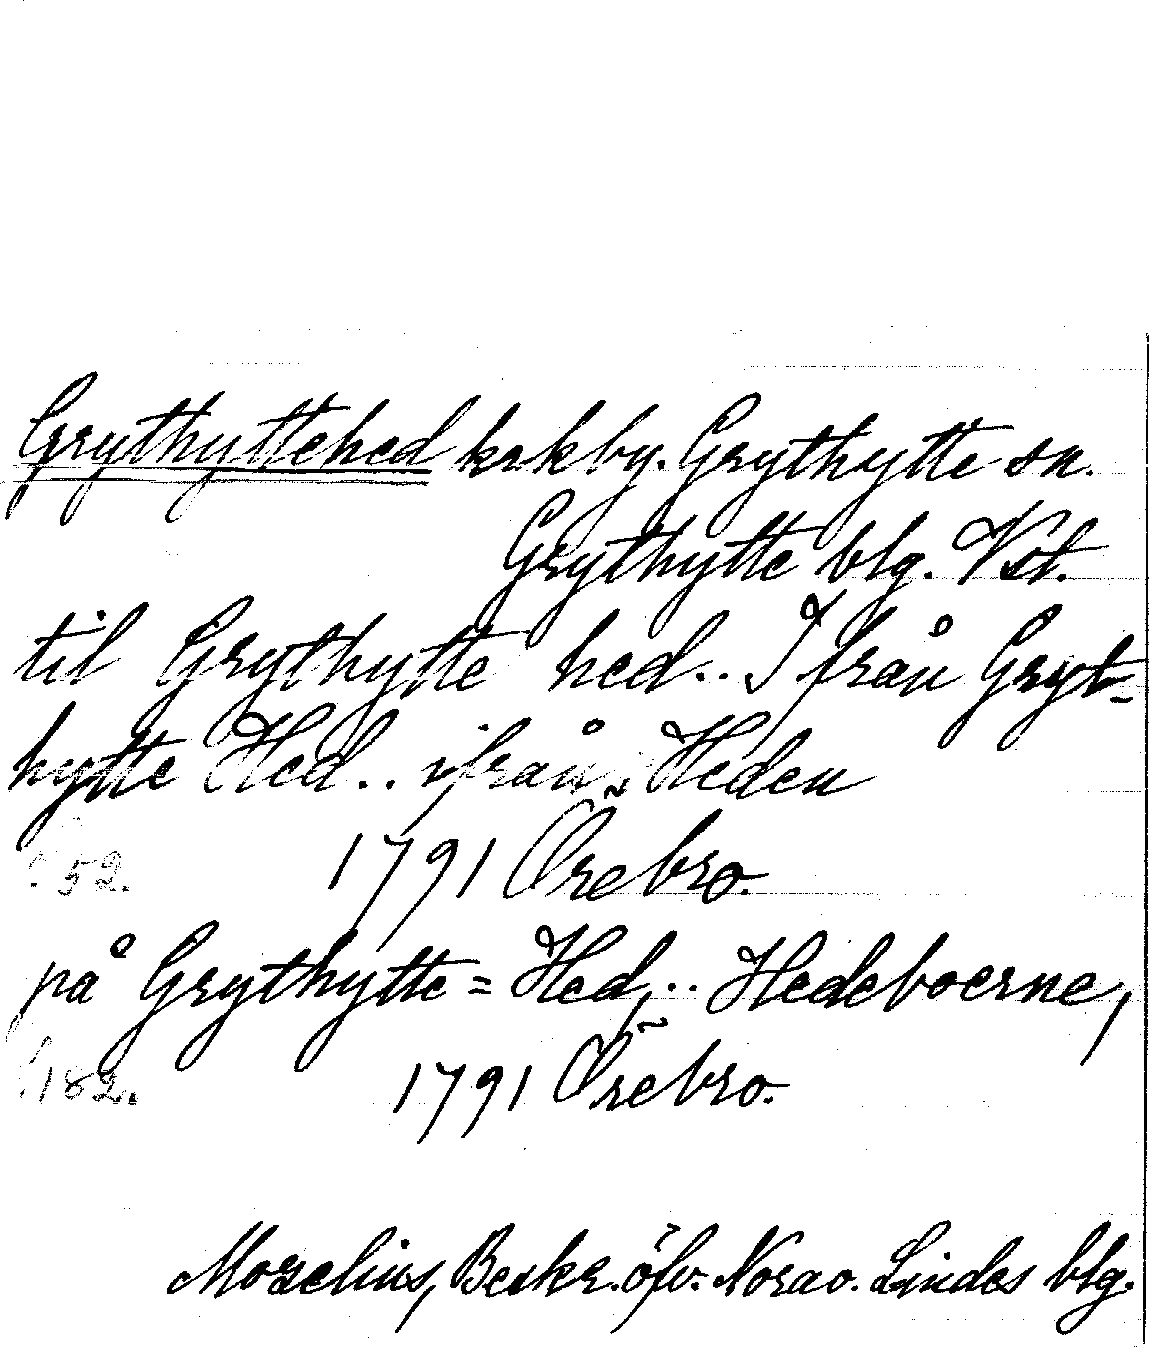 Grythyttehed krkby. Grythytte sn.
Grythytte blg. Vst.
til Grythytte hed.. I från Gryt-
hytte Hed.. ifrån Heden
52. 1791 Örebro.
på Grythytte=Hed,.. Hedeboerne,
182. 1791 Örebro.
Morelius, Beskr. öfv. Nora o. Lindes blg.